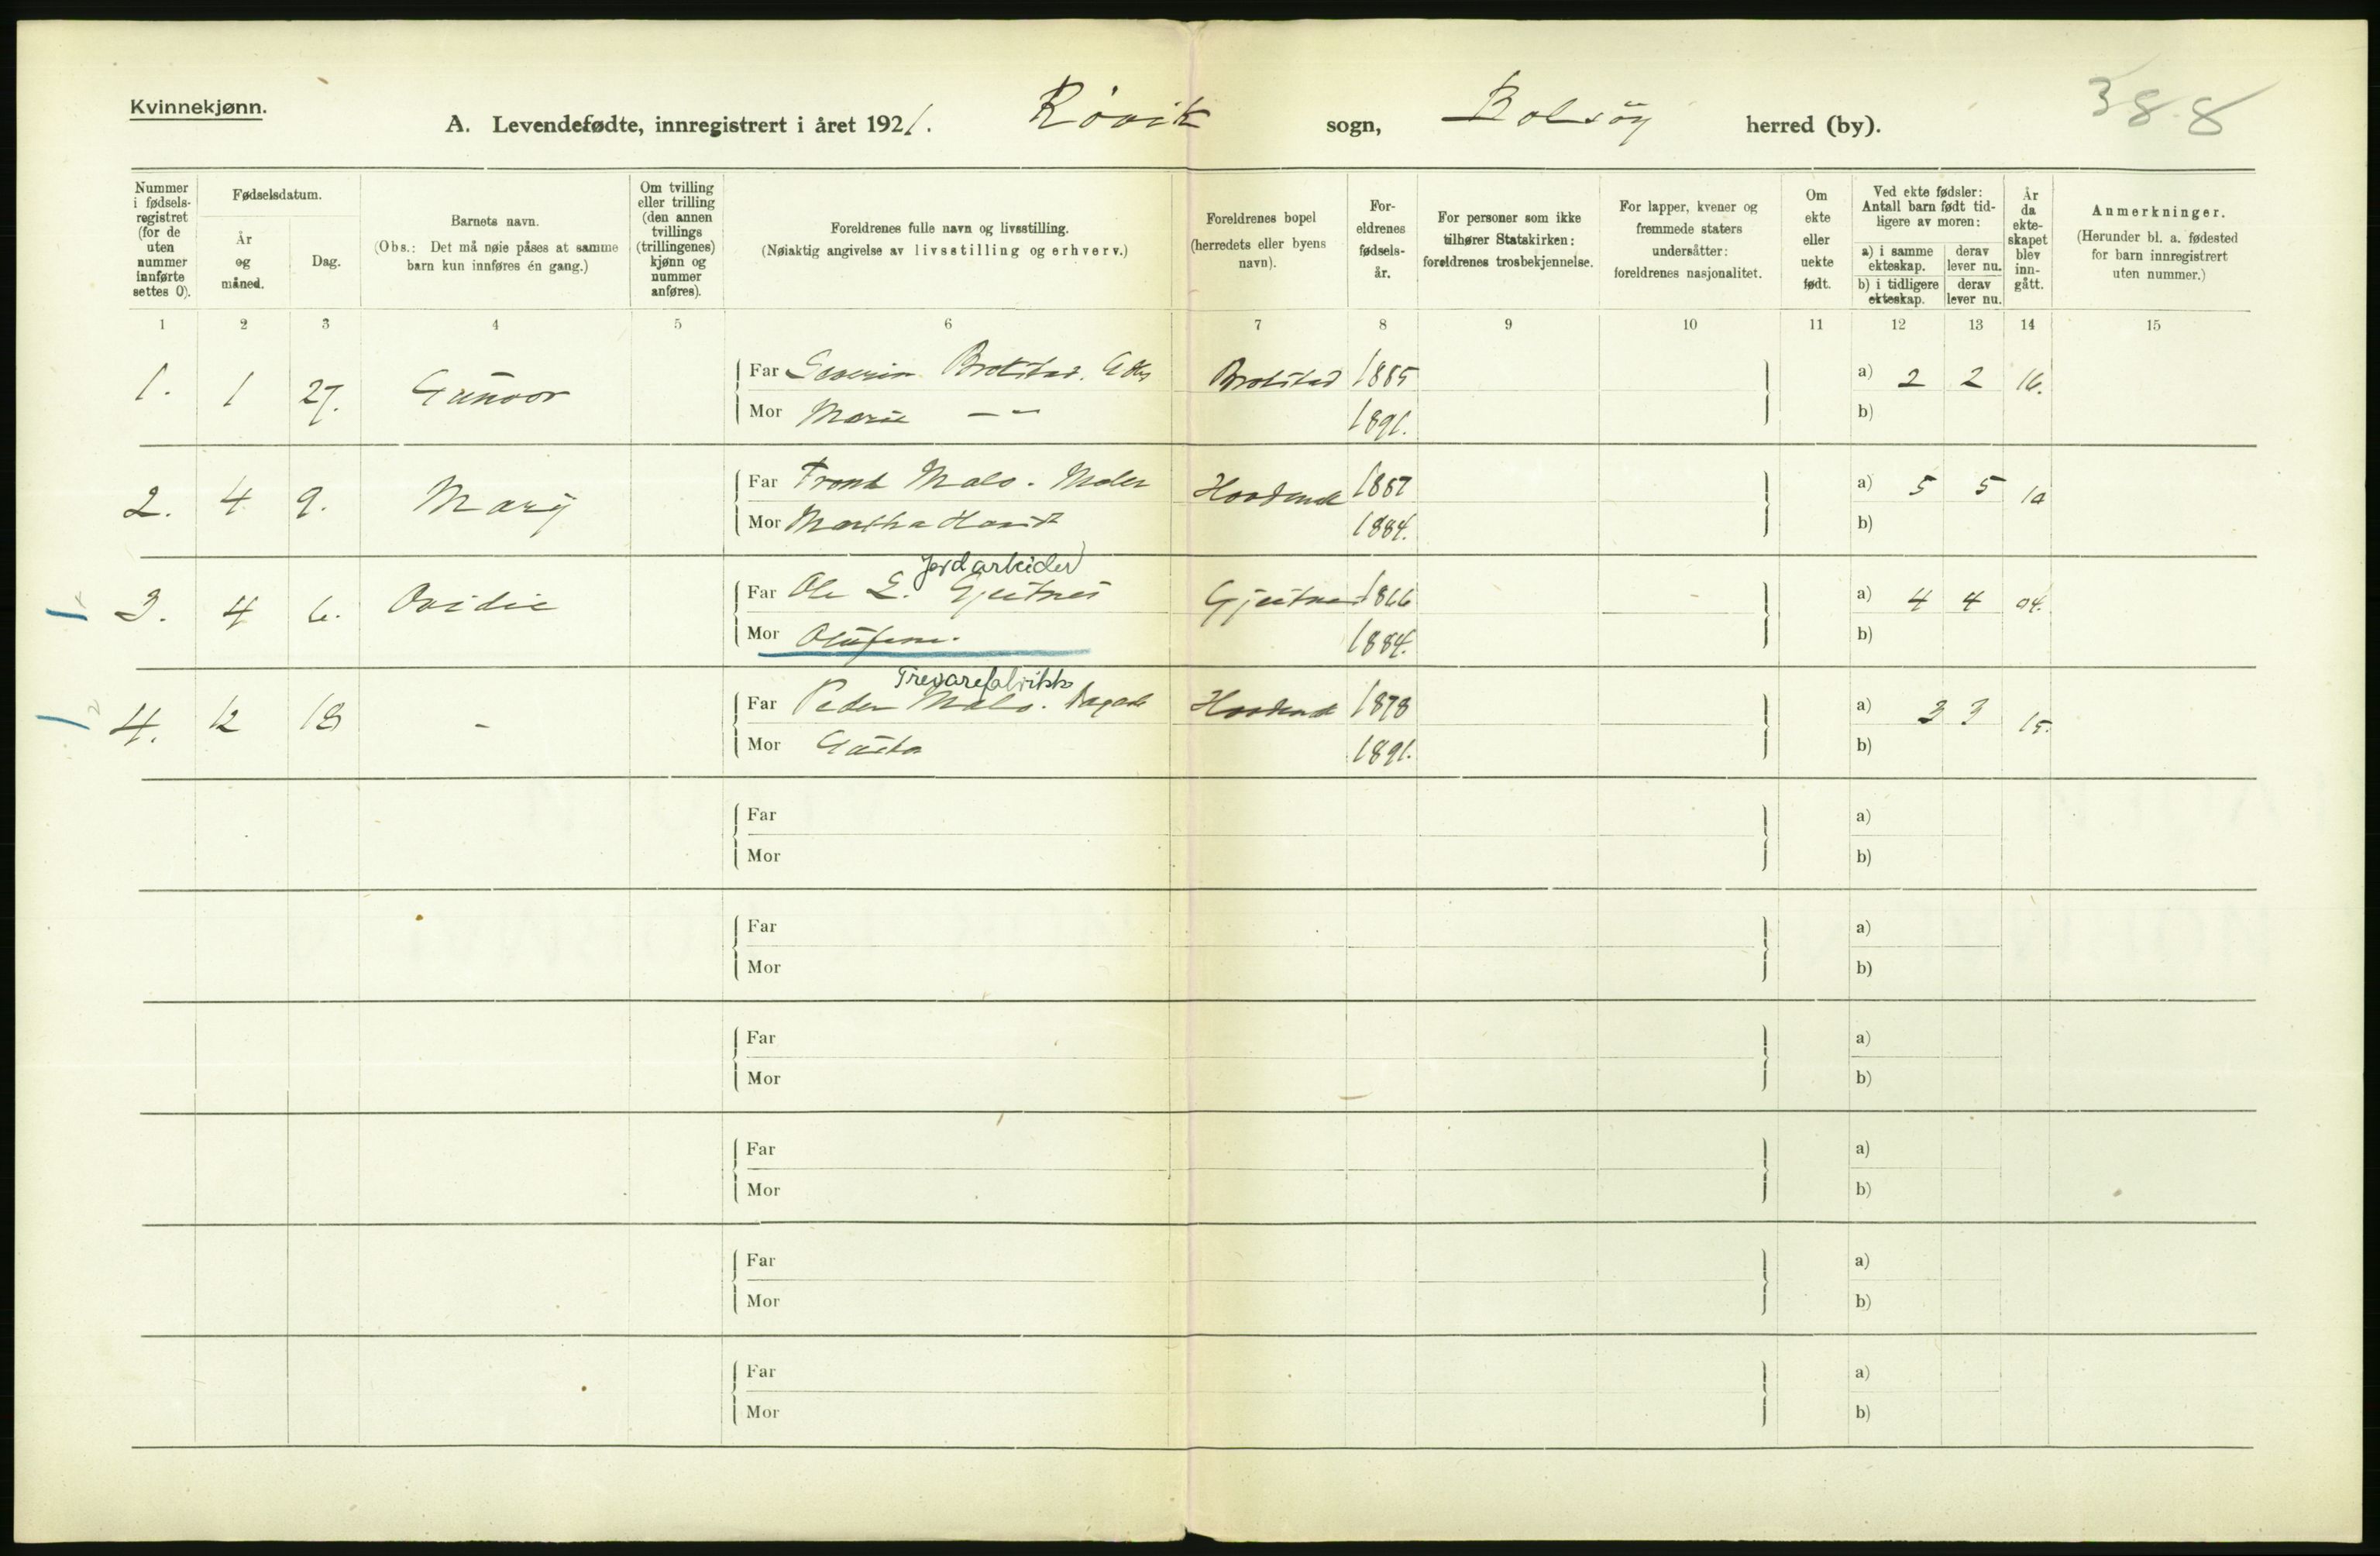 Kvinnekjønn.
A. Levendefødte, innregistrert i året 1921. Røvik sogn, Bolsöy herred (by). 388
Nummer i fødsels-registret (for de uten nummer innførte settes 0).
Fødselsdatum.
År og måned.
Dag.
Barnets navn.
(Obs.: Det må nøie påses at samme barn kun innføres én gang.)
Om tvilling eller trilling (den annen tvillings (trillingenes) kjønn og nummer anføres).
Foreldrenes fulle navn og livsstilling.
(Nøiaktig angivelse av livsstilling og erhverv.)
Foreldrenes bopel (herredets eller byens navn).
For-eldrenes fødsels-år.
For personer som ikke tilhører Statskirken: foreldrenes trosbekjennelse.
For lapper, kvener og fremmede staters undersåtter: foreldrenes nasjonalitet.
Om ekte eller uekte født.
Ved ekte fødsler: Antall barn født tid-ligere av moren:
a) i samme ekteskap. derav lever nu.
b) i tidligere ekteskap. derav lever nu.
År da ekte-skapet blev inn-gått.
Anmerkninger.
(Herunder bl. a. fødested for barn innregistrert uten nummer.)
1 2 3 4 5 6 7 8 9 10 11 12 13 14 15
1. 1 27. Gunvor Far Severin Brokstad. Brokstad 1885 a) 2 2 16.
Mor Marie — — 1891. b)
2. 4 9. Mary Far Trond Malo. Maler 1887 a) 5 5 10
Mor Martha 1884. b)
Jordarbeider
1 3. 4 6. Ovidie Far Ole L. Gjeitnes Gjeitnes 1866 a) 4 4 04.
Mor Olufine. 1884. b)
Trevarefabrikk
1 2 4. 12 18 - Far Peder Malo. 1878 a) 3 3 15.
Mor Gusta 1891. b)
Far a)
Mor b)
Far a)
Mor b)
Far a)
Mor b)
Far a)
Mor b)
Far a)
Mor b)
Far a)
Mor b)